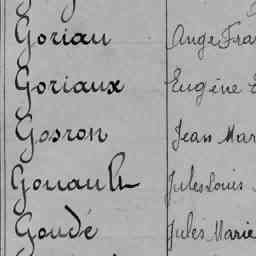 Goriau Ange Fra
Goriaux Eugène
Gosron Jean Mar
Gouault Jules Louis
Goudé Jules Marie